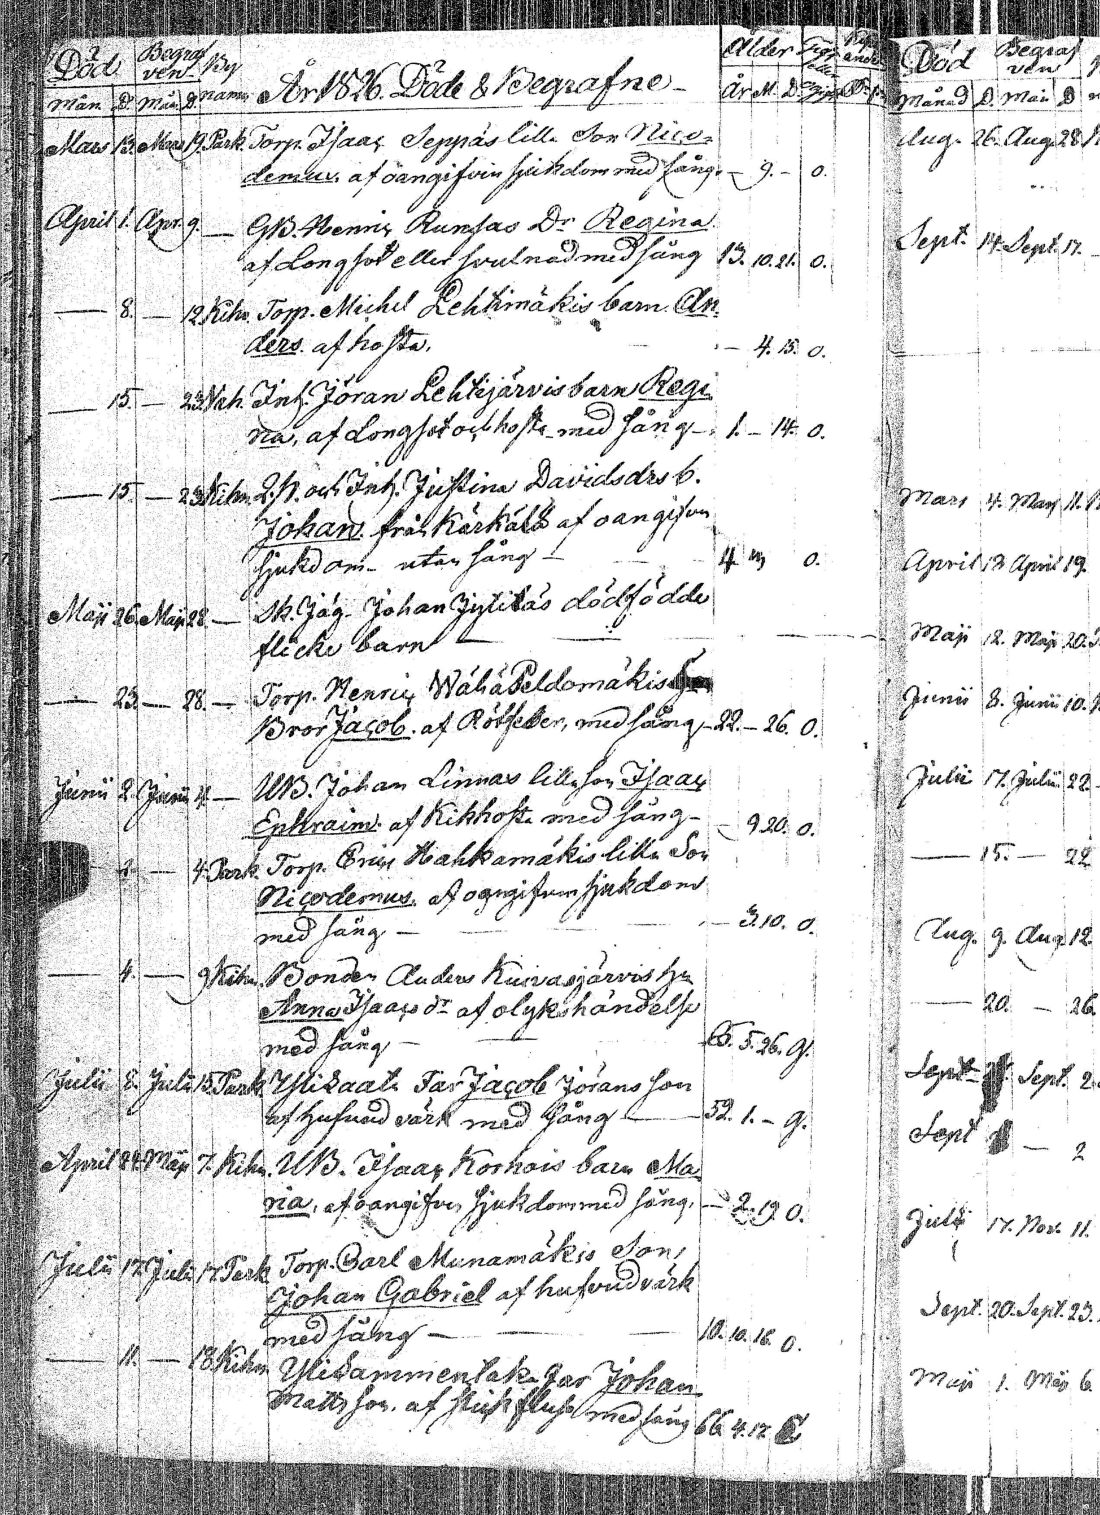 Död Begrafven By År 1826. Döde & Begrafne Ålder
Mån D. Mån D. namn År M. D.
Mars 13. Mars 19. Park. Torp. Isaac Seppäs lille Son Nico-
demus. af oangifven sjukdom med sång. — 9. — 0.
April 1. Apr. 9. — GB. Henric Runsas Dr Regina
af Longsot eller svulnad med sång 13. 10. 21. 0.
— 8. — 12. Kihn. Torp. Michel Lehtimäkis barn An-
ders. af hosta. — 4. 15. 0.
— 15. — 23. Vah. Inh. Jöran Lehtijärvis barn Regi-
na, af Longsot och hosta med sång — 1. — 14. 0.
— 15. — 23. Kihn. Q.P. och Inh. Justina Davidsdrs b.
Johan. från Kärkälä af oangifven
sjukdom utan sång — 4 0.
Maji 26. Maji 28. — Sk. Jäg. Johan Jylitäs dödfödde
flicke barn —
— 23. — 28. — Torp. Henric Wähä Peldomäkis
Bror Jacob. af Rötfeber, med sång — 22. — 26. 0.
Junii 2. Junii 4. — UB. Johan Linnas lille son Isaac
Ephraim. af Kikhosta med sång — 9 20. 0.
— 4. Park. Torp. Eric Hahkamäkis lille Son
Nicodemus. af oangifven sjukdom
med sång — — 3. 10. 0.
— 4. — 9. Kihn. Bonden Anders Kuivasjärvis hu
Anna Isaacs dr af olykshändelse
med sång — 5. 26. g.
Julii 8. Julii 15. Park. Ylikaata Far Jacob Jörans son
af hufvud värk med sång — 52. 1. — g.
April 24. Maji 7. Kihn. UB. Isaac Korhois barn Ma-
ria, af oangifven sjukdom med sång. — 2. 19 0.
Julii 17. Julii 17. Park. Torp. Carl Munamäkis Son,
Johan Gabriel af hufvudvärk
med sång — 10. 10. 16. 0.
— 11. — 18. Kihn. Ylisammentaka Far Johan
Matts son. af stickfluss med sång 66. 4. 12
Död Begrafven
Månad D. Mån D
Aug. 26. Aug. 28.
Sept. 14. Sept. 17.
Mars 4. Mars 11.
April 13. April 19.
Maji 12. Maji 20.
Junii 8. Junii 10.
Julii 17. Julii 22.
— 15. — 22
Aug. 9. Aug. 12.
— 20. — 26.
Sept. Sept. 2
Sept — 2
Julii 17. Nov. 11.
Sept. 20. Sept. 23.
Maji 1. Maji 6.